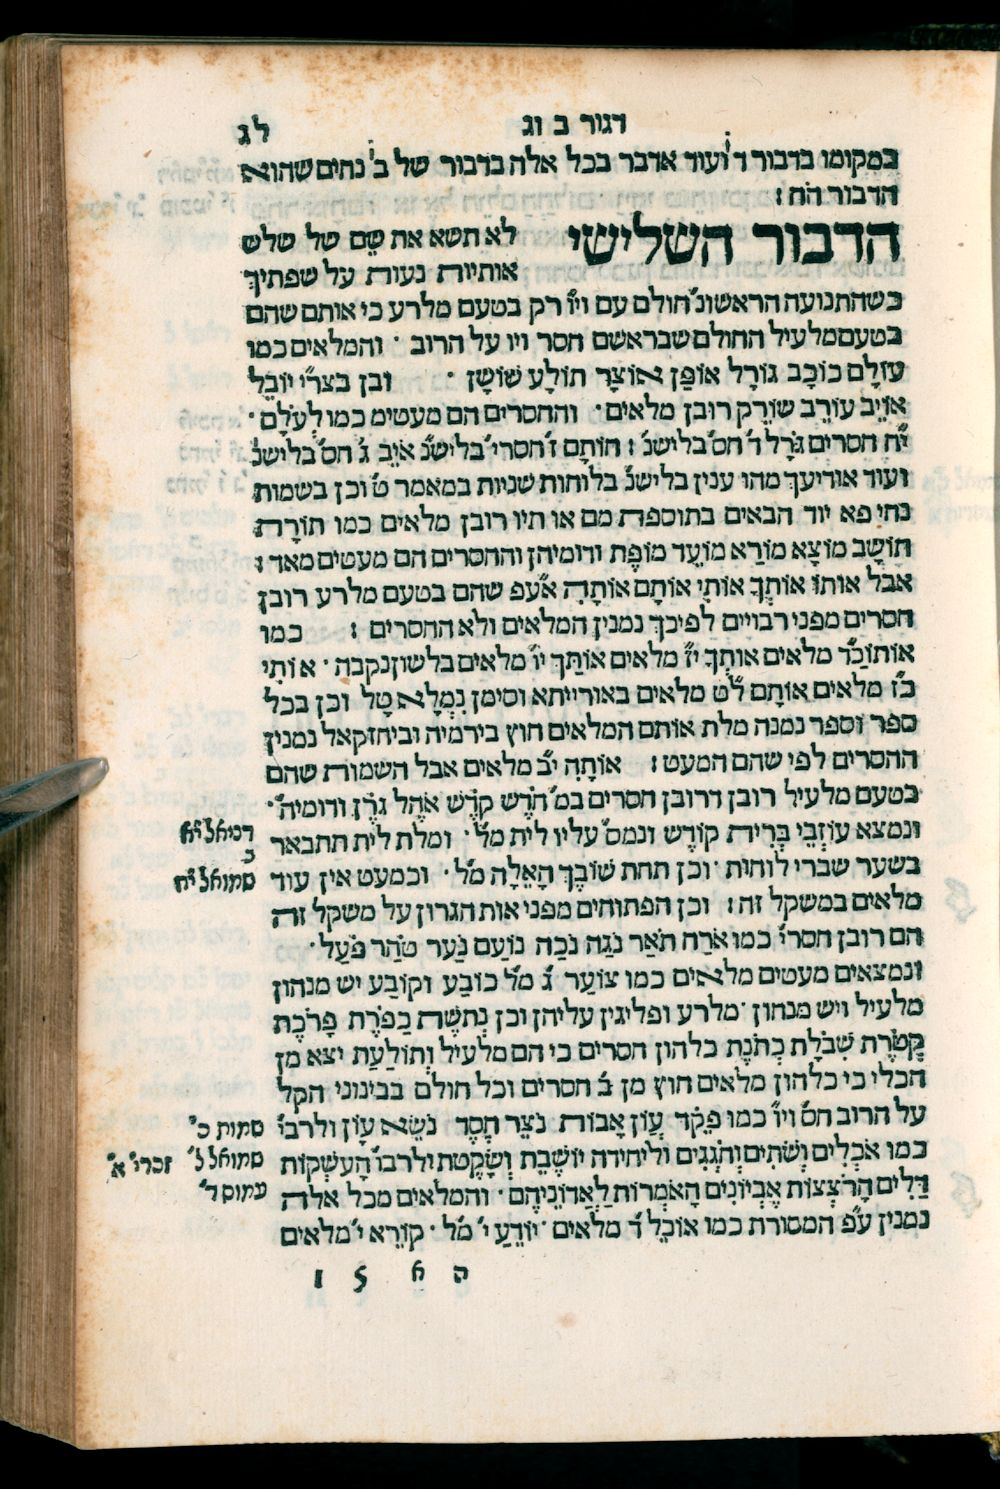 דבור ב וג
לג
במקומו בדבור ד' ועוד אדבר בכל אלה בדבור של ב' נחים שהוא
הדבור הח׃
הדבור השלישי לא תשא את שֵם של שלש
אותיות נעות על שפתיך
כשהתנועה הראשונ' חולם עם וי"ו רק בטעם מלרע כי אותם שהם
בטעם מלעיל החולם שבראשם חסר ויו על הרוב ׳ והמלאים כמו
עוֹלָם כוֹכָב גוֹרָל אוֹפַן אוֹצָר תוֹלָע שוֹשָן ׳ וכן בצר"י יוֹבֵל
אוֹיֵב עוֹרֵב שוֹרֵק רובן מלאים ׳ והחסרים הם מעטים כמו לְעֹלָם ׳
י"ח חסרים גֹרָל ד' חס' בלישנ' ׃ חוֹתָם ז' חסרי' בלישנ' אֹיֵב ג' חס' בלישנ'
ועוד אודיעך מהו ענין בלישנ' בלוחות שניות במאמר ט' וכן בשמות
נחי פא יוד הבאים בתוספת מם או תיו רובן מלאים כמו תוֹרָה
תוֹשָב מוֹצָא מוֹרָא מוֹעֵד מוֹפֵת ודומיהן והחסרים הם מעטים מאד ׃
אבל אותוֹ אוֹתְךָ אוֹתִי אוֹתָם אוֹתָהּ אע"פ שהם בטעם מלרע רובן
חסרים מפני רבויים לפיכך נמנין המלאים ולא החסרים ׃ כמו
אוֹתוֹ כ"ד מלאים אוֹתְךָ י"ז מלאים אוֹתַּךְ י"ו מלאים בלשון נקבה ׳ אוֹתִי
כ"ז מלאים אוֹתָם ל"ט מלאים באורייתא וסימן נִמְלָא טָל וכן בכל
ספר וספר נמנה מלת אותם המלאים חוץ בירמיה וביחזקאל נמנין
ההסרים לפי שהם המעט ׃ אוֹתָהּ י"ב מלאים אבל השמות שהם
בטעם מלעיל רובן דרובן חסרים כמ' חֹדֶש קֹדֶש אֹהֶל גֹרֶן ודומיה' ׳
ונמצא עוֹזְבֵי בְּרִית קוֹדֶש ונמס' עליו לית מל' ׳ ומלת לית תתבאר
בשער שברי לוחות ׳ וכן תחת שוֹבֶךְ הָאֵלָה מ"ל ׳ וכמעט אין עוד
מלאים במשקל זה ׃ וכן הפתוחים מפני אות הגרון על משקל זה
הם רובן חסרי' כמו אֹרַח תֹאַר נֹגַהּ נֹכַח נוֹעַם נֹעַר טֹהַר פֹּעַל ׳
ונמצאים מעטים מלאים כמו צוֹעַר ג' מ"ל כוֹבַע וקוֹבַע יש מנהון
מלעיל ויש מנהון ׳ מלרע ופליגין עליהן וכן נְחֹשֶת כַּפֹּרֶת פָּרֹכֶת
קְטֹרֶת שִׁבֹּלֶת כְּתֹנֶת כלהון חסרים כי הם מלעיל וְתוֹלַעַת יצא מן
הכלל כי כלהון מלאים חוץ מן ב' חסרים וכל חולם בבינוני הקל
על הרוב חס' וי"ו כמו פֹּקֵד עֲוֹן אָבוֹת נֹצֵר חֶסֶד נֹשֵא עָוֹן ולרבי'
כמו אֹכְלִים וְשֹתִים וְחֹגְגִים וליחידה יוֹשֶבֶת וְשֹקֶטֶת ולרבו' הָעֹשְקוֹת
דַּלִּים הָרֹצְצוֹת אֶבְיוֹנִים הָאֹמְרוֹת לַאֲדוֹנֵיהֶם ׳ והמלאים מכל אלה
נמנין ע"פ המסורת כמו אוֹכֵל ד' מלאים ׳ יוֹדֵעַ י' מ"ל ׳ קוֹרֵא י' מלאים
דניאל י"א
ב
סמואל י"ח
סמות כ'
סמואל ל' זכרי' א'
עמוס ד'
ה א 5 1